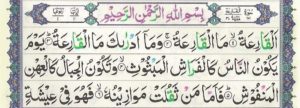 بِسْمِ اللّٰهِ الرَّحْمٰنِ الرَّحِيْمِ
اَلْقَارِعَةُ ۙ مَا الْقَارِعَةُ ۚ وَمَاۤ اَدْرٰىكَ مَا الْقَارِعَةُ ؕ يَوْمَ
يَكُوْنُ النَّاسُ كَالْفَرَاشِ الْمَبْثُوْثِ ۙ وَتَكُوْنُ الْجِبَالُ كَالْعِهْنِ
الْمَنْفُوْشِ ؕ فَاَمَّا مَنْ ثَقُلَتْ مَوَازِيْنُهٗ ۙ فَهُوَ فِيْ عِيْشَةٍ